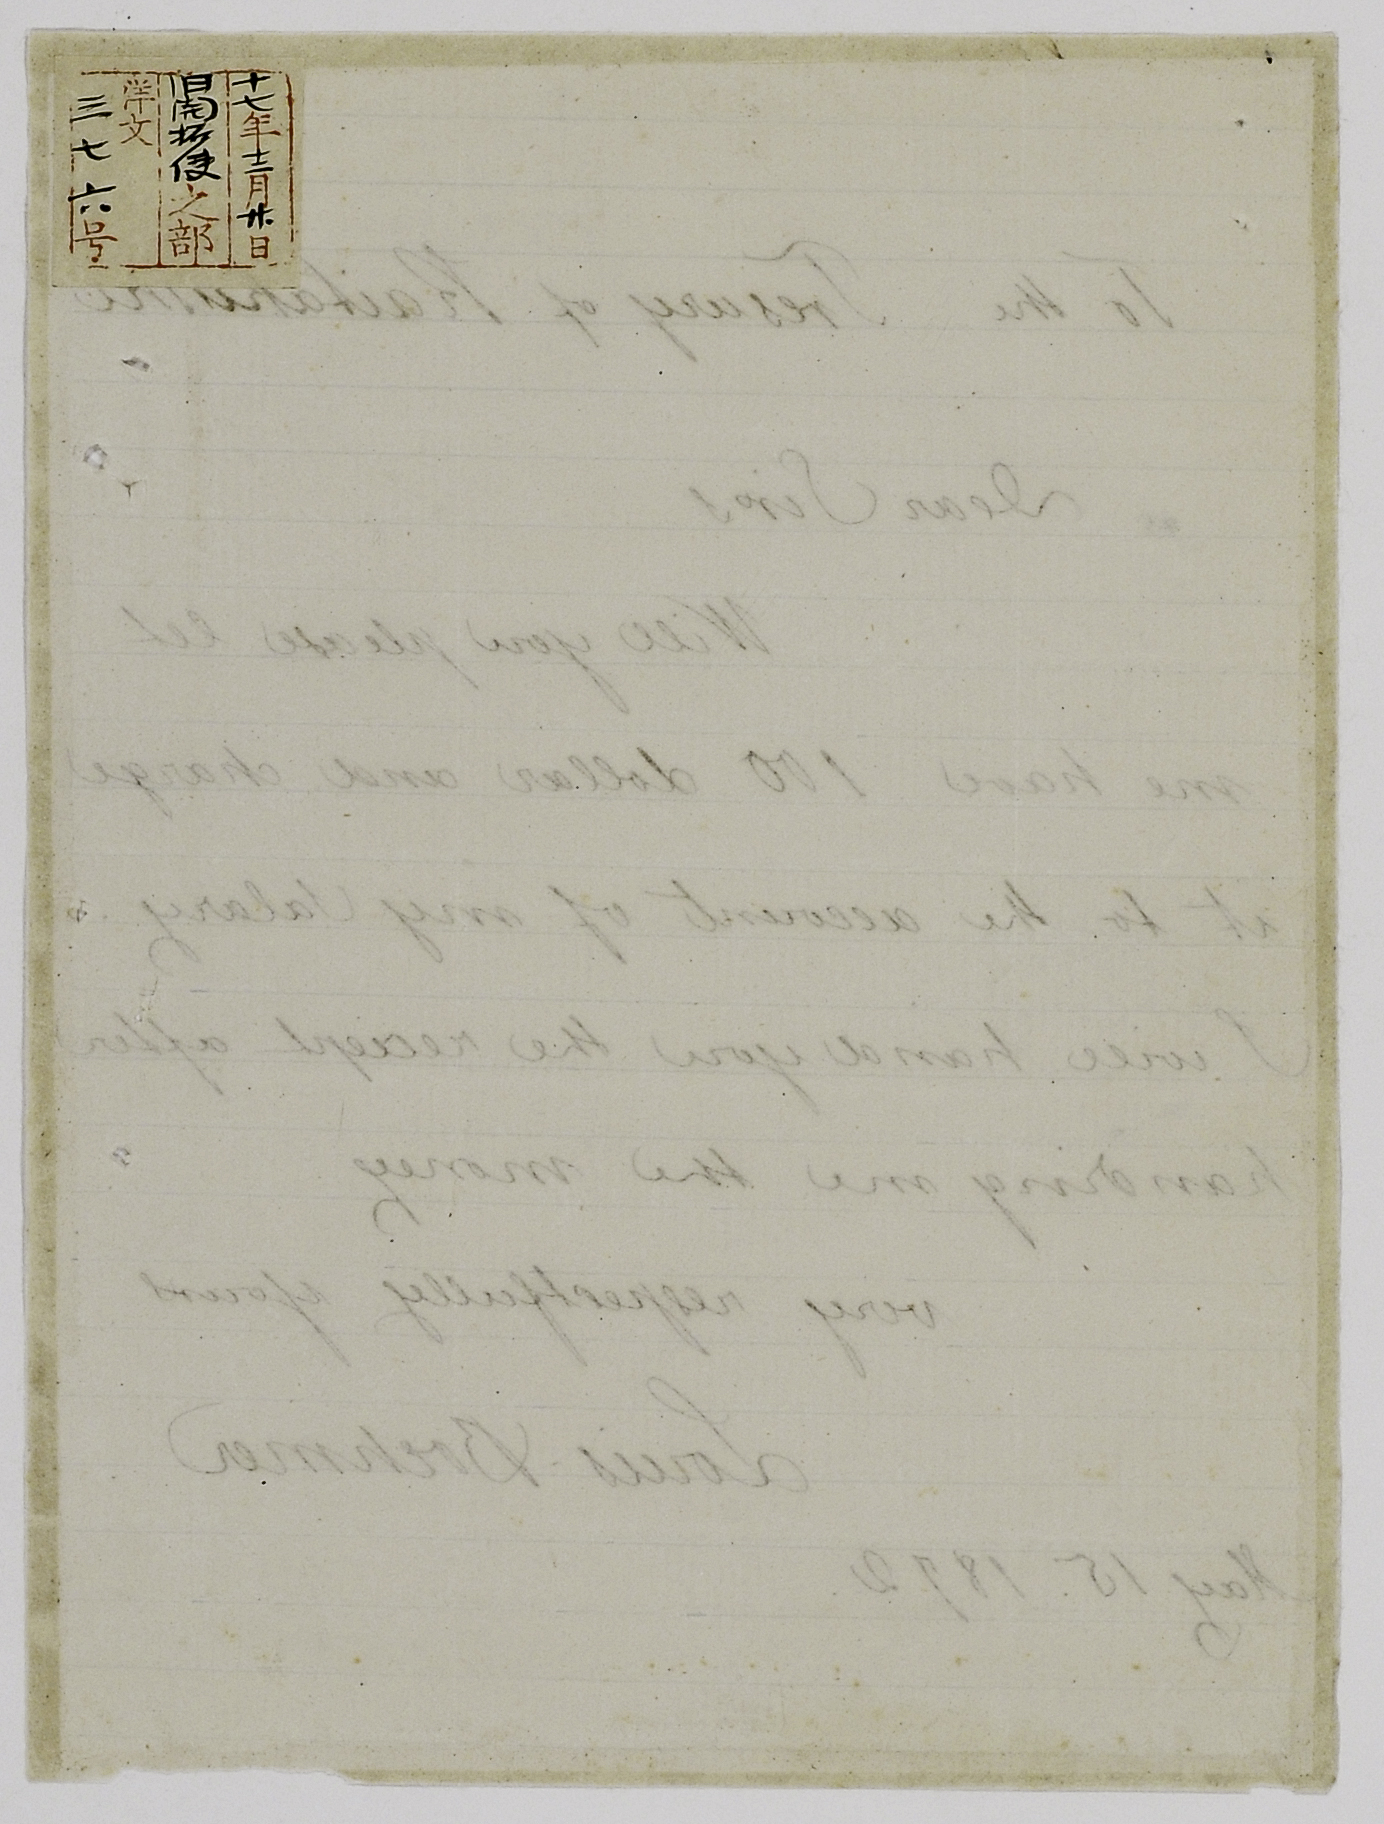 十七年十二月廿日
旧開拓使之部
洋文
三七六号
To the Tresury of Kaitakushi
Dear Sirs
Will you please let
me have 100 dollar and charge
it to the account of my Salary.
I will hand you the receipt after
handing me the money
very respectfully yours
Louis Boehmer
May 15. 1872.